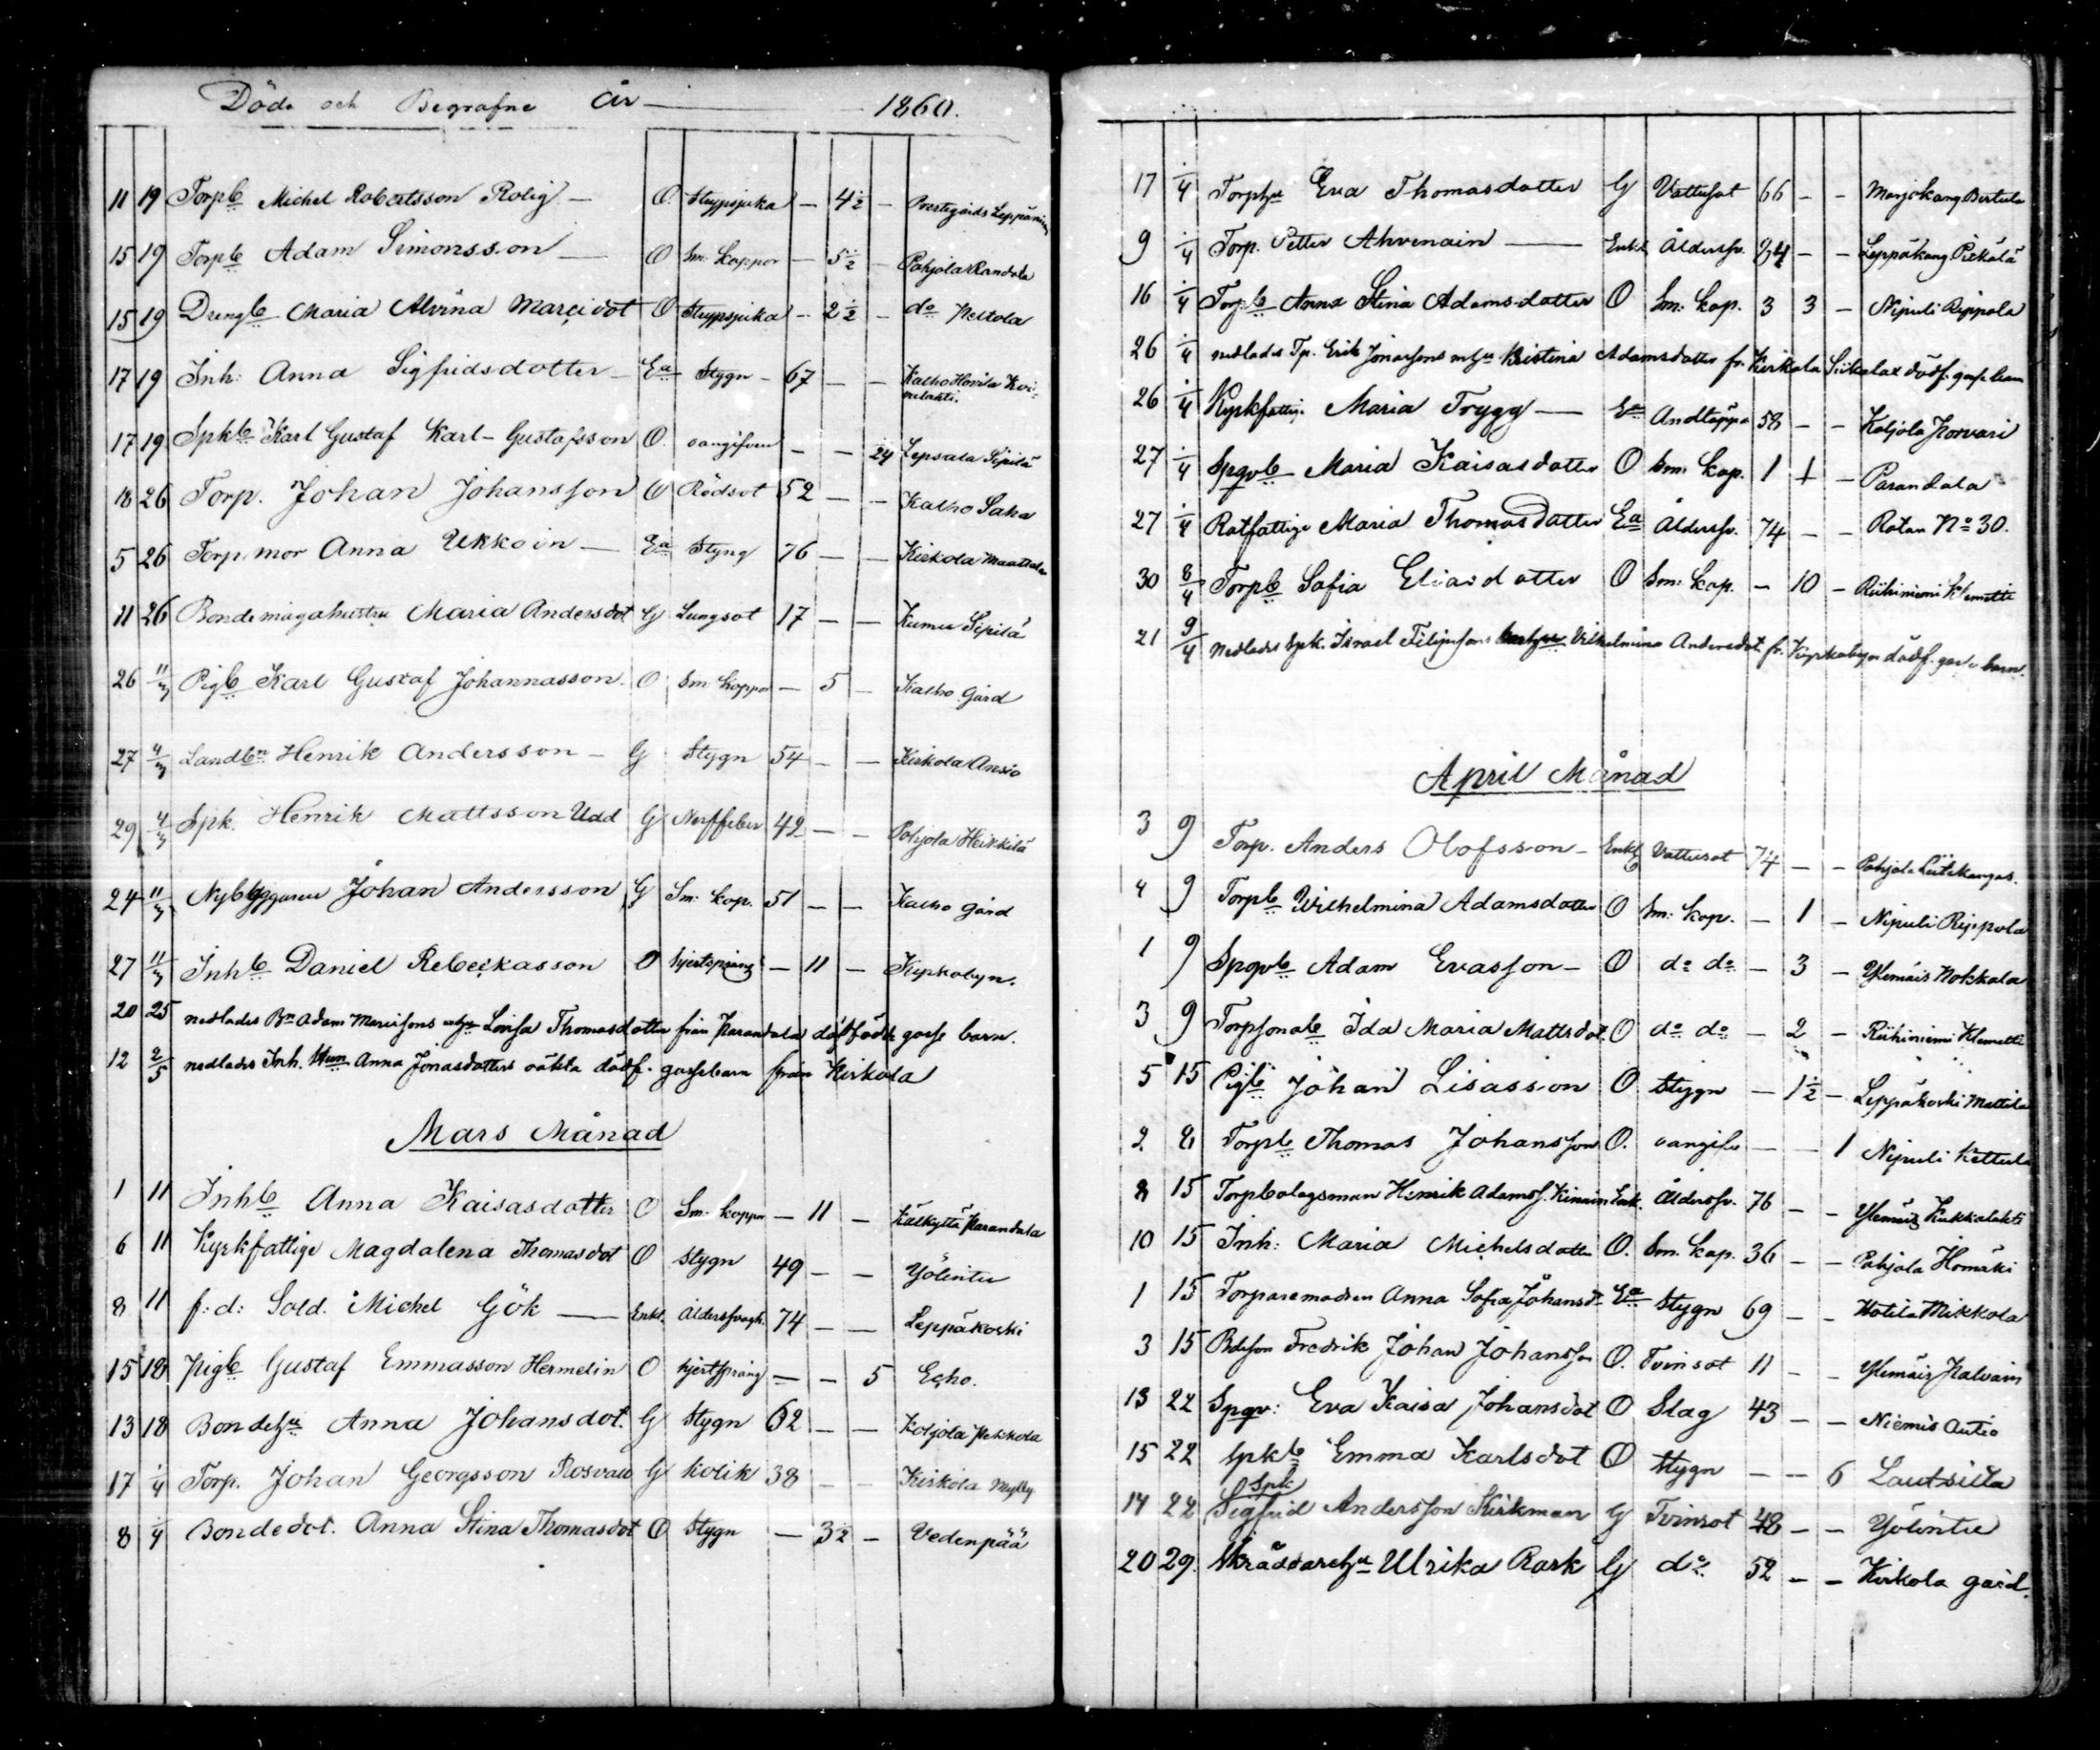 Döde och Begrafne År 1860.
11 19 Torpb Michel Robertsson Rolig — O. Strypsjuka — 4½ — Prestgårds Leppäniemi
15 19 Torpb Adam Simonsson — O Sm: koppor — 5½ — Pohjola Randala
15 19 Drengb Maria Alvina Marcidot O Strypsjuka — 2½ — do Pekola
17 19 Inh: Anna Sigfridsdotter — Ea Stygn — 67 — — Kalho Hovila Koivulahti.
17 19 Spkb Karl Gustaf Karl-Gustafsson O. oangifven — — 24 Lepsala Sipilä
18 26 Torp. Johan Johansson O Rödsot 52 — — Kalho Saha
5 26 Torp.mor Anna Ukkoin — Ea Styng 76 — — Kirkola Maattala
11 26 Bondemågahustru Maria Andersdot G Lungsot 17 — — Kumu Sipilä
26 11/3 Pigb Karl Gustaf Johannasson — O Sm: koppor — 5 — Kalho Gård
27 4/3 Landbn Henrik Andersson — G Stygn 54 — — Kirkola Ansio
29 4/3 Spk. Henrik Mattsson Udd G Nerffeber 42 — — Pohjola Heikkilä
24 11/3 Nybyggaren Johan Andersson G Sm: kop. 51 — — Kalho gård
27 11/3 Inhb Daniel Rebeckasson O hjertspräng — 11 — Kyrkobyn.
20 25 nedlades Bn Adam Mariisons Lovisa Thomasdotter från Parandala dödfödt gosse barn.
12 2/5 nedlades Inh. Anna Jonasdotters oäkta dödf. gossebarn från Kirkola
Mars Månad
1 11 Inhb Anna Kaisasdotter O Sm: koppor — 11 — Kälkyttä Parandala
6 11 Kyrkfattige Magdalena Thomasdot O stygn 49 — — Yölintu
8 11 f:d: Sold. Michel Gök — Enkl. Åldersbragh. 74 — — Leppäkoski
15 18 Pigb Gustaf Emmasson Hermelin O hjertspräng — — 5 Echo.
13 18 Bondehu Anna Johansdot. G Stygn 62 — — Koljola Pekkola
17 1/4 Torp. Johan Georgsson Rosvall G Kolik 38 — — Kirkola Mylly
8 1/4 Bondedot. Anna Stina Thomasdot O Stygn — 3½ — Vedenpää
17 1/4 Torphu Eva Thomasdotter G Vattusot 66 — — Marjokang Bertula
9 1/4 Torp. Petter Ahvenain — Enkl Åldersbr. — — Leppäkang Pickälä
16 1/4 Torpb Anna Stina Adamsdotter O Sm: kop. 3 3 — Nipuli Reippola
26 1/4 nedlades Tp. Erik Jonassons Kristina Adamsdotter fr. Kirkola dödf. gossebarn
26 1/4 Kyrkfattige Maria Trygg — Ea Andtäppa 58 — — Koljola Horvari
27 1/4 Spgvb Maria Kaisasdotter O Sm: kop. 1 1 — Parandala
27 1/4 Rotfattige Maria Thomasdotter Ea Åldersbr. 74 — — Rotan No 30.
30 8/4 Torpb Sofia Eliasdotter O Sm: kop. — 10 — Riihiniemi Klemetti
21 9/4 nedlades Spk. Israel Filipssons Vilhelmina Andersdot fr. Kyrkobyn dödf. gosse barn.
April Månad
3 9 Torp. Anders Olofsson — Enkl Vattusot 74 — — Pohjola Leitikangas.
4 9 Torpb Wilhelmina Adamsdotter O Sm: kop. — 1 — Nipuli Reippola
1 9 Spgvb Adam Evasson — O do do — 3 — Ylemäis Nokkala
3 9 Torpsonab Ida Maria Mattsdot. O do do — 2 — Riihiniemi Klemetti
5 15 Pigb Johan Lisasson O. Stygn — 1½ — Leppäkoski Mattila
2 8 Torpb Thomas Johansson O. oangifv — — 1 Nipuli Kettula
8 15 Torpbolagsman Henrik Adamss. Enk. Åldersbr. 76 — — Ylemäis Kukkolahti
10 15 Inh: Maria Michelsdotter O. Sm. kop. 36 — — Pohjola Homäki
1 15 Torparemodren Anna Sofia Johansd. Ea Stygn 69 — — Hotila Mikkola
3 15 Bdeson Fredrik Johan Johansson O. Tvinsot 11 — — Ylemäis Halvarin
13 22 Spgv: Eva Kaisa Johansdot O Slag 43 — — Niemis Autio
15 22 Spkb Emma Karlsdot O Stygn — — 6 Lautsilta
14 22 Spk Sigfrid Andersson Kirkman G Tvinsot 48 — — Yölintu
20 29. Skräddarehu Ulrika Rask G do 52 — — Kirkola gård.